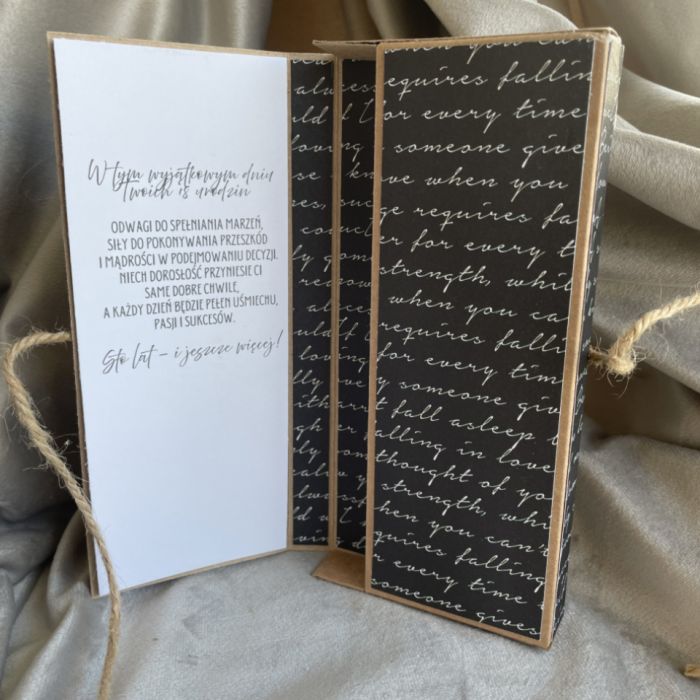 W tym wyjątkowym dniu
Twoich 18 urodzin
ODWAGI DO SPEŁNIANIA MARZEŃ,
SIŁY DO POKONYWANIA PRZESZKÓD
I MĄDROŚCI W PODEJMOWANIU DECYZJI.
NIECH DOROSŁOŚĆ PRZYNIESIE CI
SAME DOBRE CHWILE,
A KAŻDY DZIEŃ BĘDZIE PEŁEN UŚMIECHU,
PASJI I SUKCESÓW.
Sto lat – i jeszcze więcej!
when you can
requires fallin
for every time
someone give
ve when you
ge requires f
er for every t
strength, whil
when you ca
requires falli
for every time
someone giv
t fall asleep b
falling in love
thought of yo
strength, whi
hen you can't
requires falling
every time
someone gives